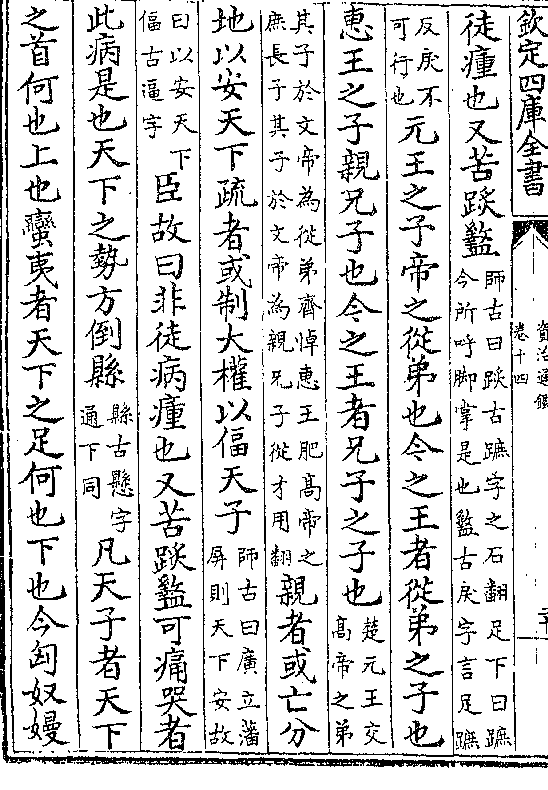 欽定四庫全書
資治通鑑
卷十四
徒瘇也又苦䟽盭師古曰䟽古蹠字之石翻足下曰蹠今所呼脚掌是也盭古戾字言足蹠
反戾不可行也元王之子帝之從弟也今之王者從弟之子也
惠王之子親兄子也今之王者兄子之子也楚元王交高帝之弟
其子於文帝為從弟齊悼惠王肥高帝之庶長子其子於文帝為親兄子從才用翻親者或亡分
地以安天下疏者或制大權以偪天子師古曰廣立藩屏則天下安故
曰以安天下偪古逼字臣故曰非徒病瘇也又苦䟽盭可痛哭者
此病是也天下之勢方倒縣縣古懸字通下同凡天子者天下
之首何也上也蠻夷者天下之足何也下也今匈奴嫚